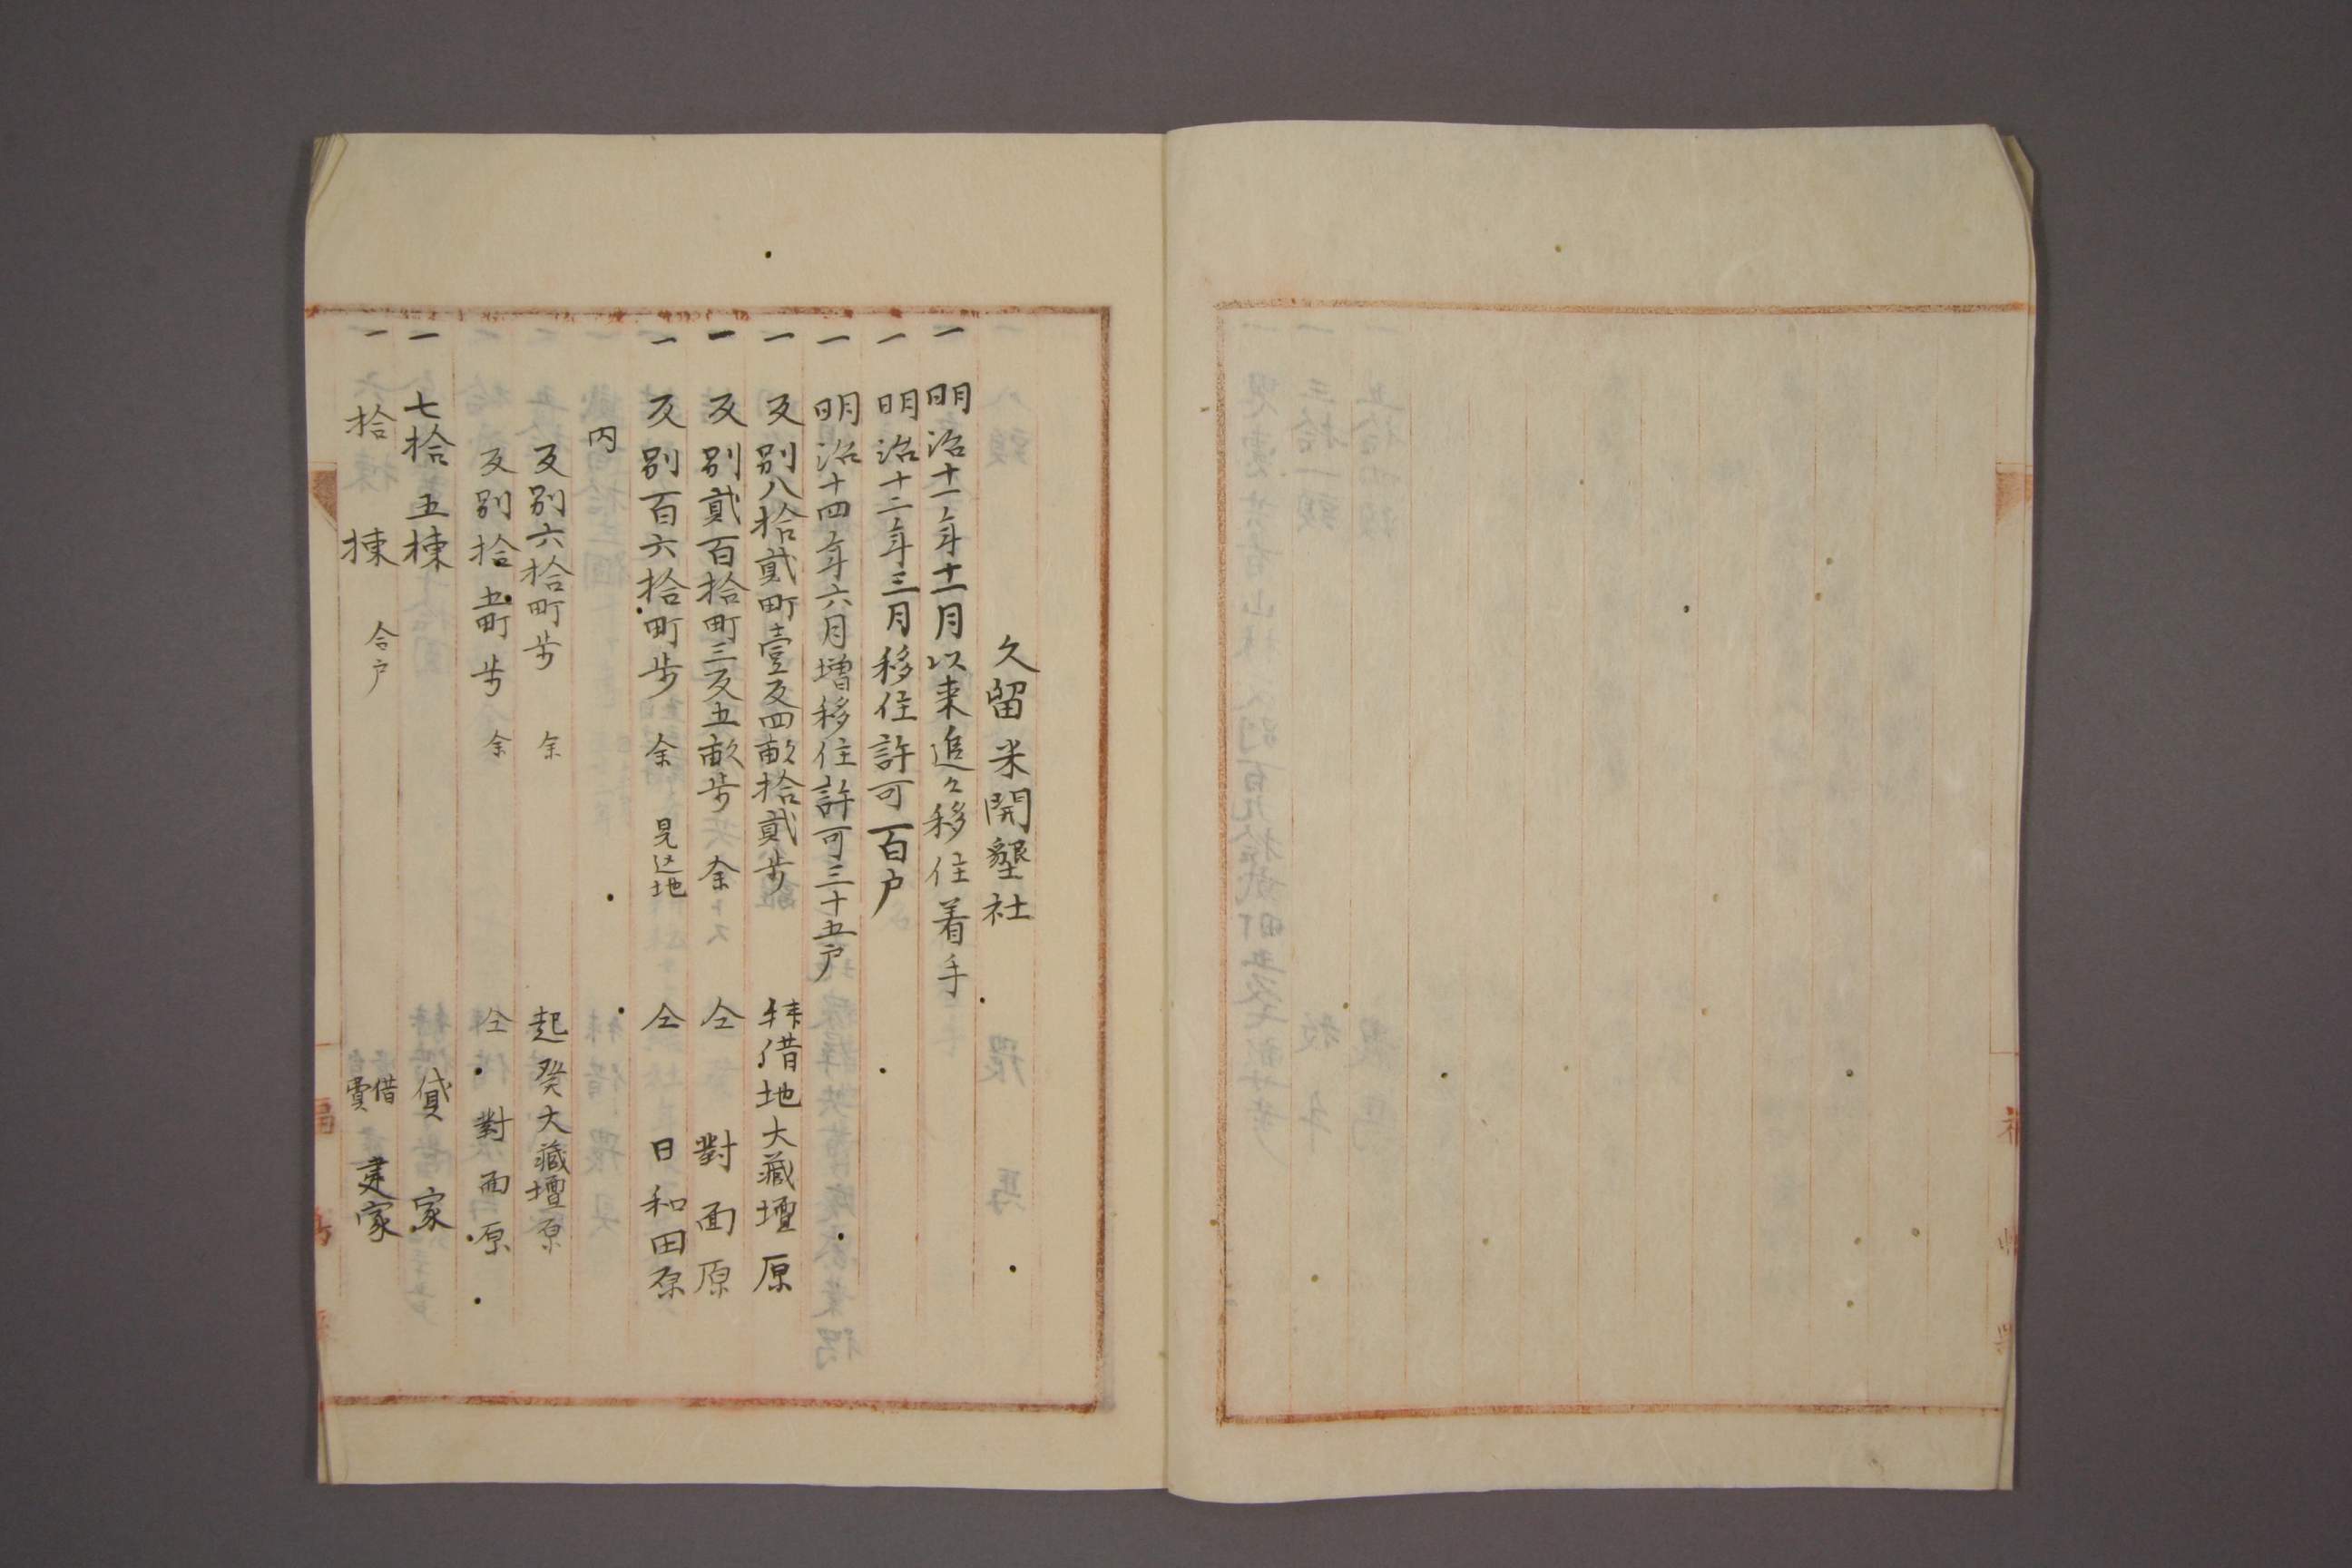 久留米開墾社
一 明治十一年十一月以来追々移住着手
一 明治十二年三月移住許可百户
一 明治十四年六月増移住許可三十五户
一 反別八拾貳町壹反四畝拾貳歩 拝借地大藏壇原
一 反別貳百拾町三反五畝歩余 仝 對面原
一 反別百六拾町歩余 見込地 仝 日和田原
内
反別六拾町歩余 起発大藏壇原
反別拾五町歩余 仝 對面原
一 七拾五棟 貸家
一 拾棟 仝户 借買 建家